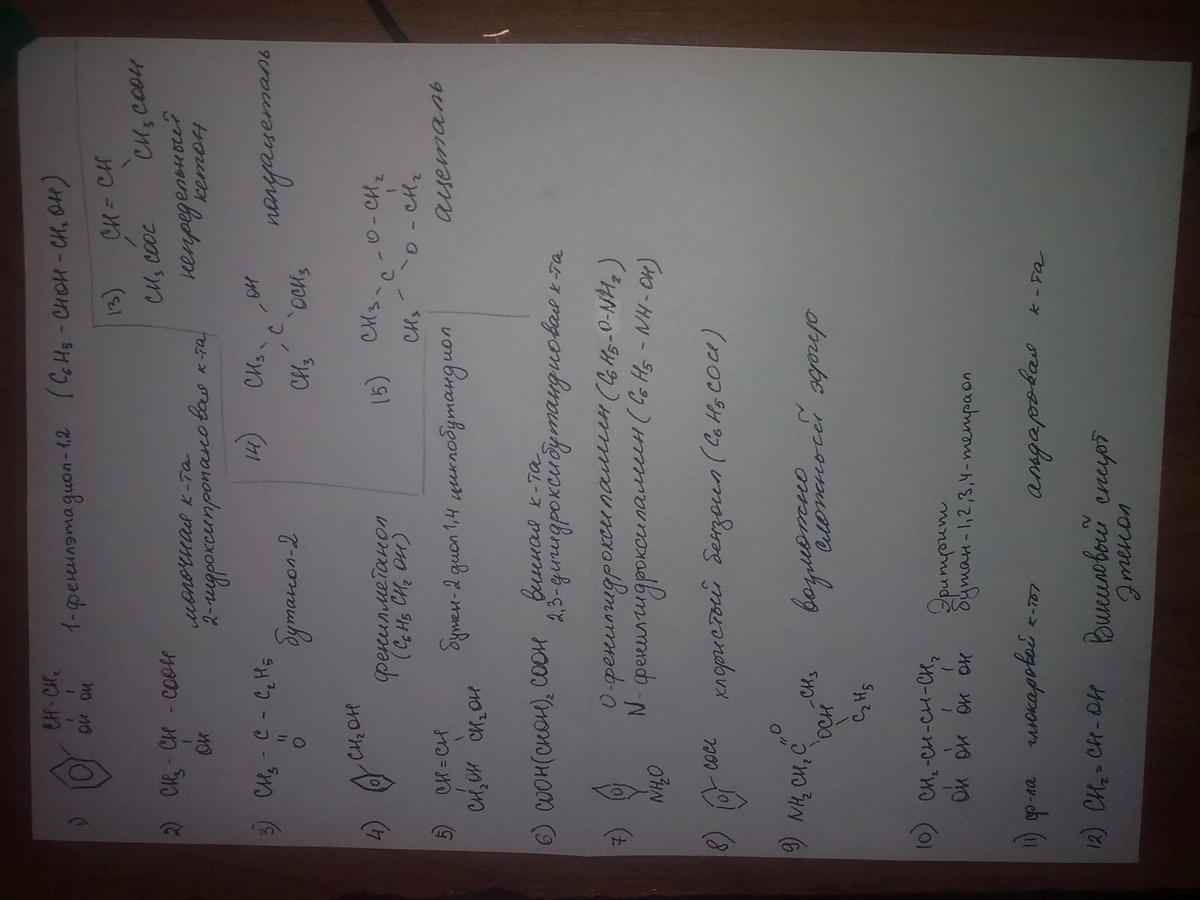 1)
CH-CH2
OH OH
1-фенилэтадиол-1,2 (C6H5-CHOH-CH2OH)
2) CH3-CH-COOH
OH
молочная к-та
2-гидрокситропановая к-та
3) CH3-C-C2H5
O
бутанол-2
4)
CH2OH
фенилметанол
(C6H5CH2OH)
5) CH=CH
CH2OH CH2OH
бутен-2 диол 1,4 циклобутандиол
6) COOH(CHOH)2COOH
винная к-та
2,3-дигидроксибутандиовая к-та
7)
NH2O
O-фенилгидроксиламин (C6H5-O-NH2)
N-фенилгидроксиламин (C6H5-NH-OH)
8)
COCl
хлористый бензоил (C6H5COCl)
9) NH2CH2C
O
OCH-CH3
C2H5
возможно
сложный эфир
10) CH2-CH-CH-CH2
OH OH OH OH
Эритрит
бутан-1,2,3,4-тетраол
11) ф-ла глюкаровой к-ты альдаровая к-та
12) CH2=CH-OH Виниловый спирт
Этенол
13) CH=CH
CH3COOC CH3COOH
непредельный
кетон
14) CH3 OH
C
CH3 OCH3
полуацеталь
15) CH3-C-O-CH2
CH3 O-CH2
ацеталь